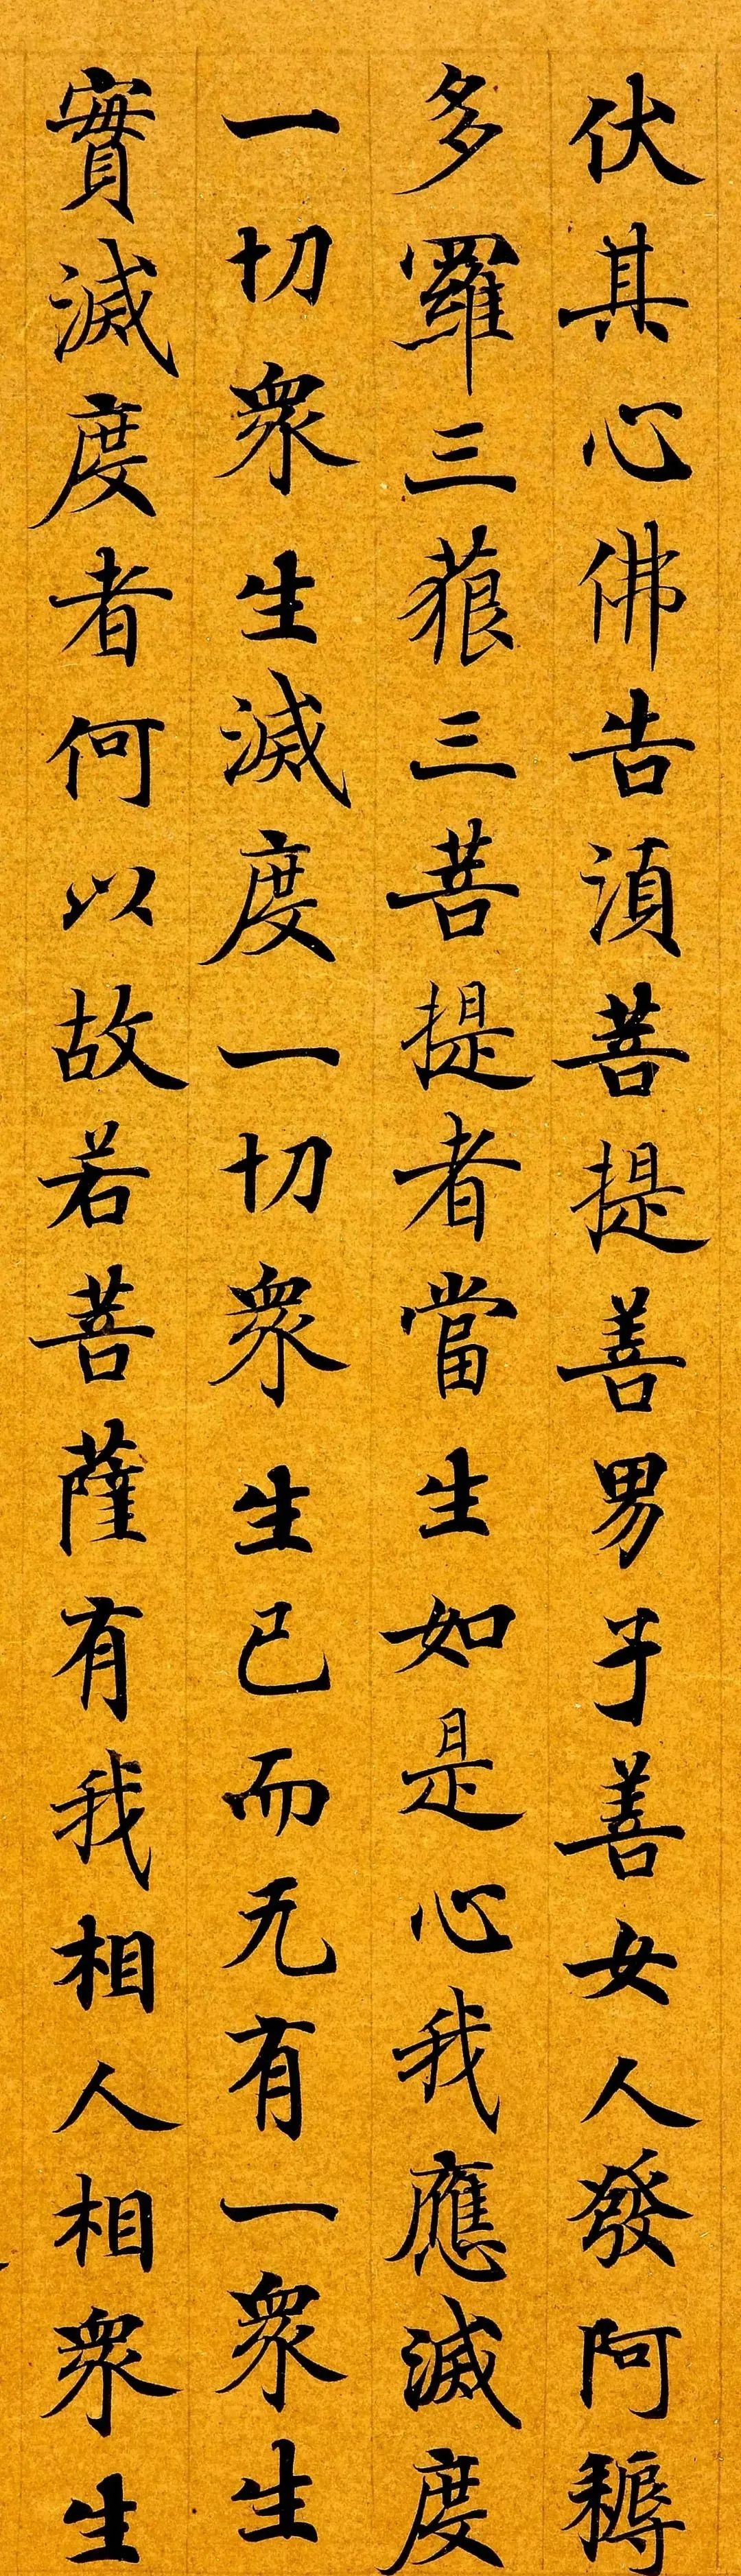 伏其心佛告湏菩提善男子善女人發阿耨
多羅三藐三菩提者當生如是心我應滅度
一切衆生滅度一切衆生已而无有一衆生
實滅度者何以故若菩薩有我相人相衆生